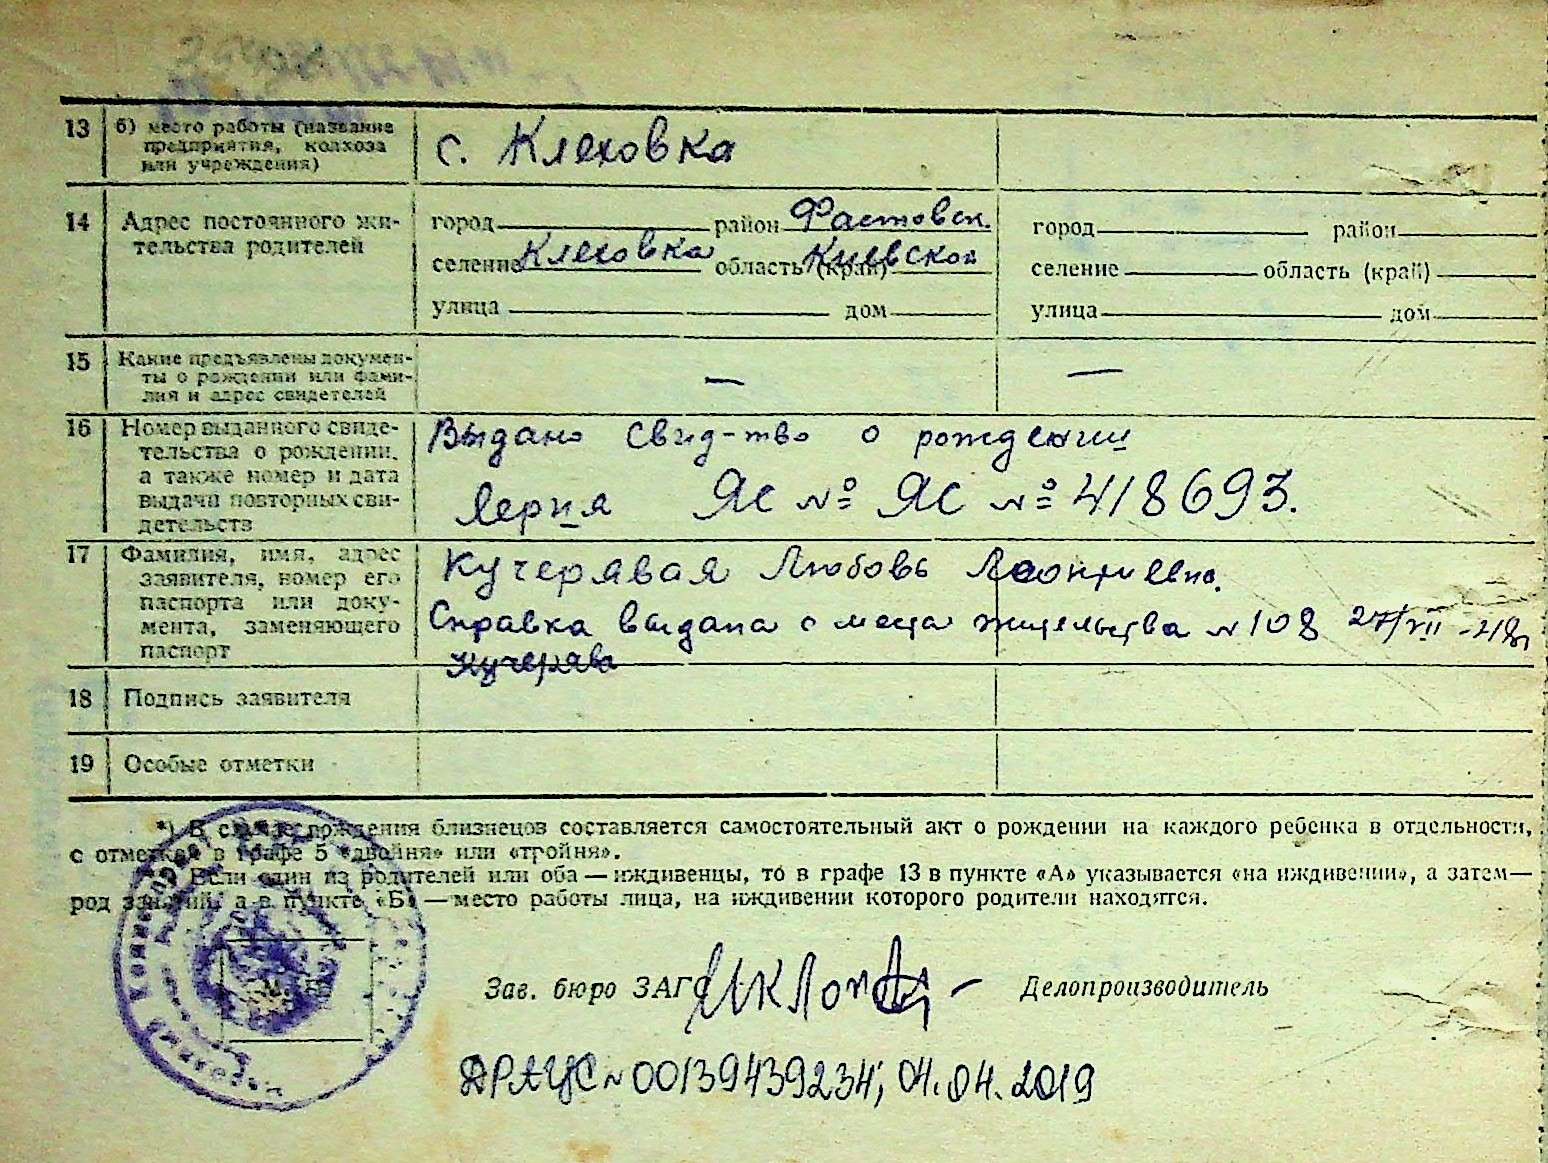 13 б) место работы (название
предприятия, колхоза
или учреждения)
с. Клеховка
14 Адрес постоянного жи-
тельства родителей
город район Фастовск.
селение Клеховка область (край) Киевской
улица дом
город район
селение область (край)
улица дом
15 Какие предъявлены докумен-
ты о рождении или фами-
лия и адрес свидетелей
— —
16 Номер выданного свиде-
тельства о рождении,
а также номер и дата
выдачи повторных сви-
детельств
Выдано свид-тво о рождении
серия ЯС № ЯС № 418693.
17 Фамилия, имя, адрес
заявителя, номер его
паспорта или доку-
мента, заменяющего
паспорт
Кучерявая Любовь Леонтиевна.
Справка выдана с места жительства № 108 27/VII -48
Кучерява
18 Подпись заявителя
19 Особые отметки
*) В случае рождения близнецов составляется самостоятельный акт о рождении на каждого ребенка в отдельности,
с отметкой в графе 5 «двойня» или «тройня».
Если один из родителей или оба — иждивенцы, то в графе 13 в пункте «А» указывается «на иждивении», а затем—
род занятий, а в пункте «Б» — место работы лица, на иждивении которого родители находятся.
Зав. бюро ЗАГС Делопроизводитель
ДРАЦС № 00139439234; 04.04.2019